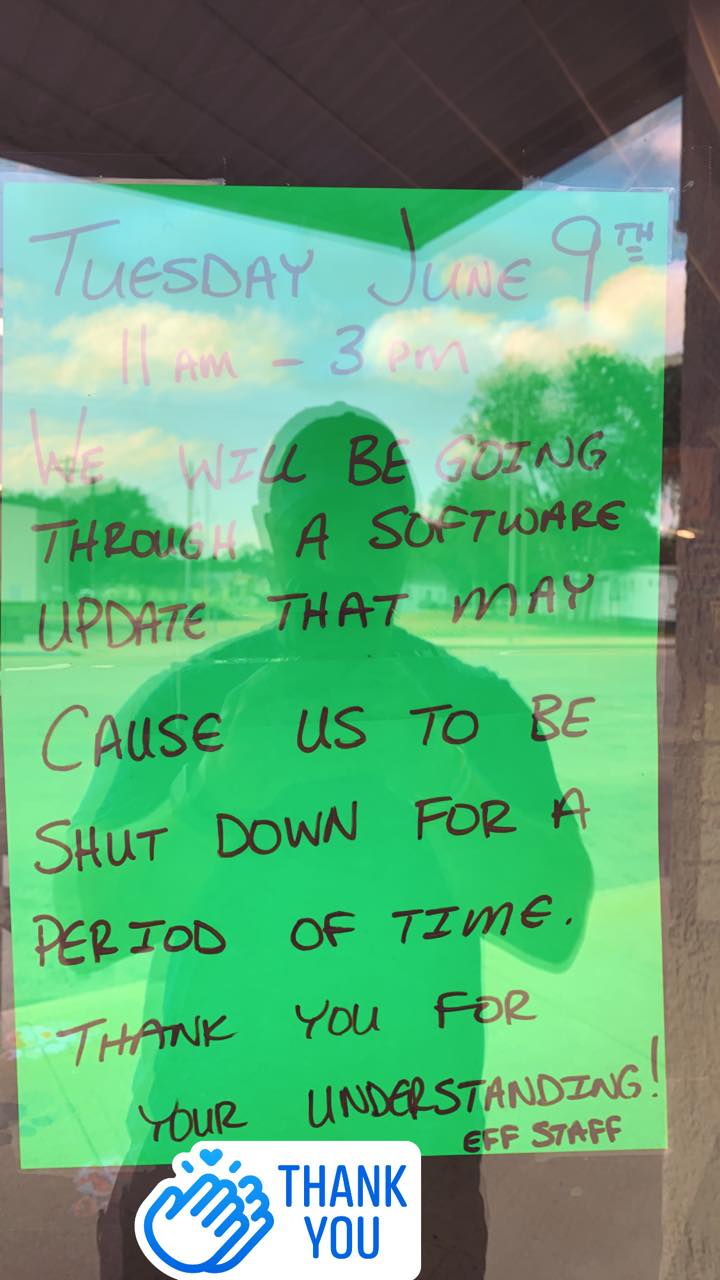 TUESDAY JUNE 9TH
11 AM - 3 PM
WE WILL BE GOING
THROUGH A SOFTWARE
UPDATE THAT MAY
CAUSE US TO BE
SHUT DOWN FOR A
PERIOD OF TIME.
THANK YOU FOR
YOUR UNDERSTANDING!
EFF STAFF
THANK
YOU